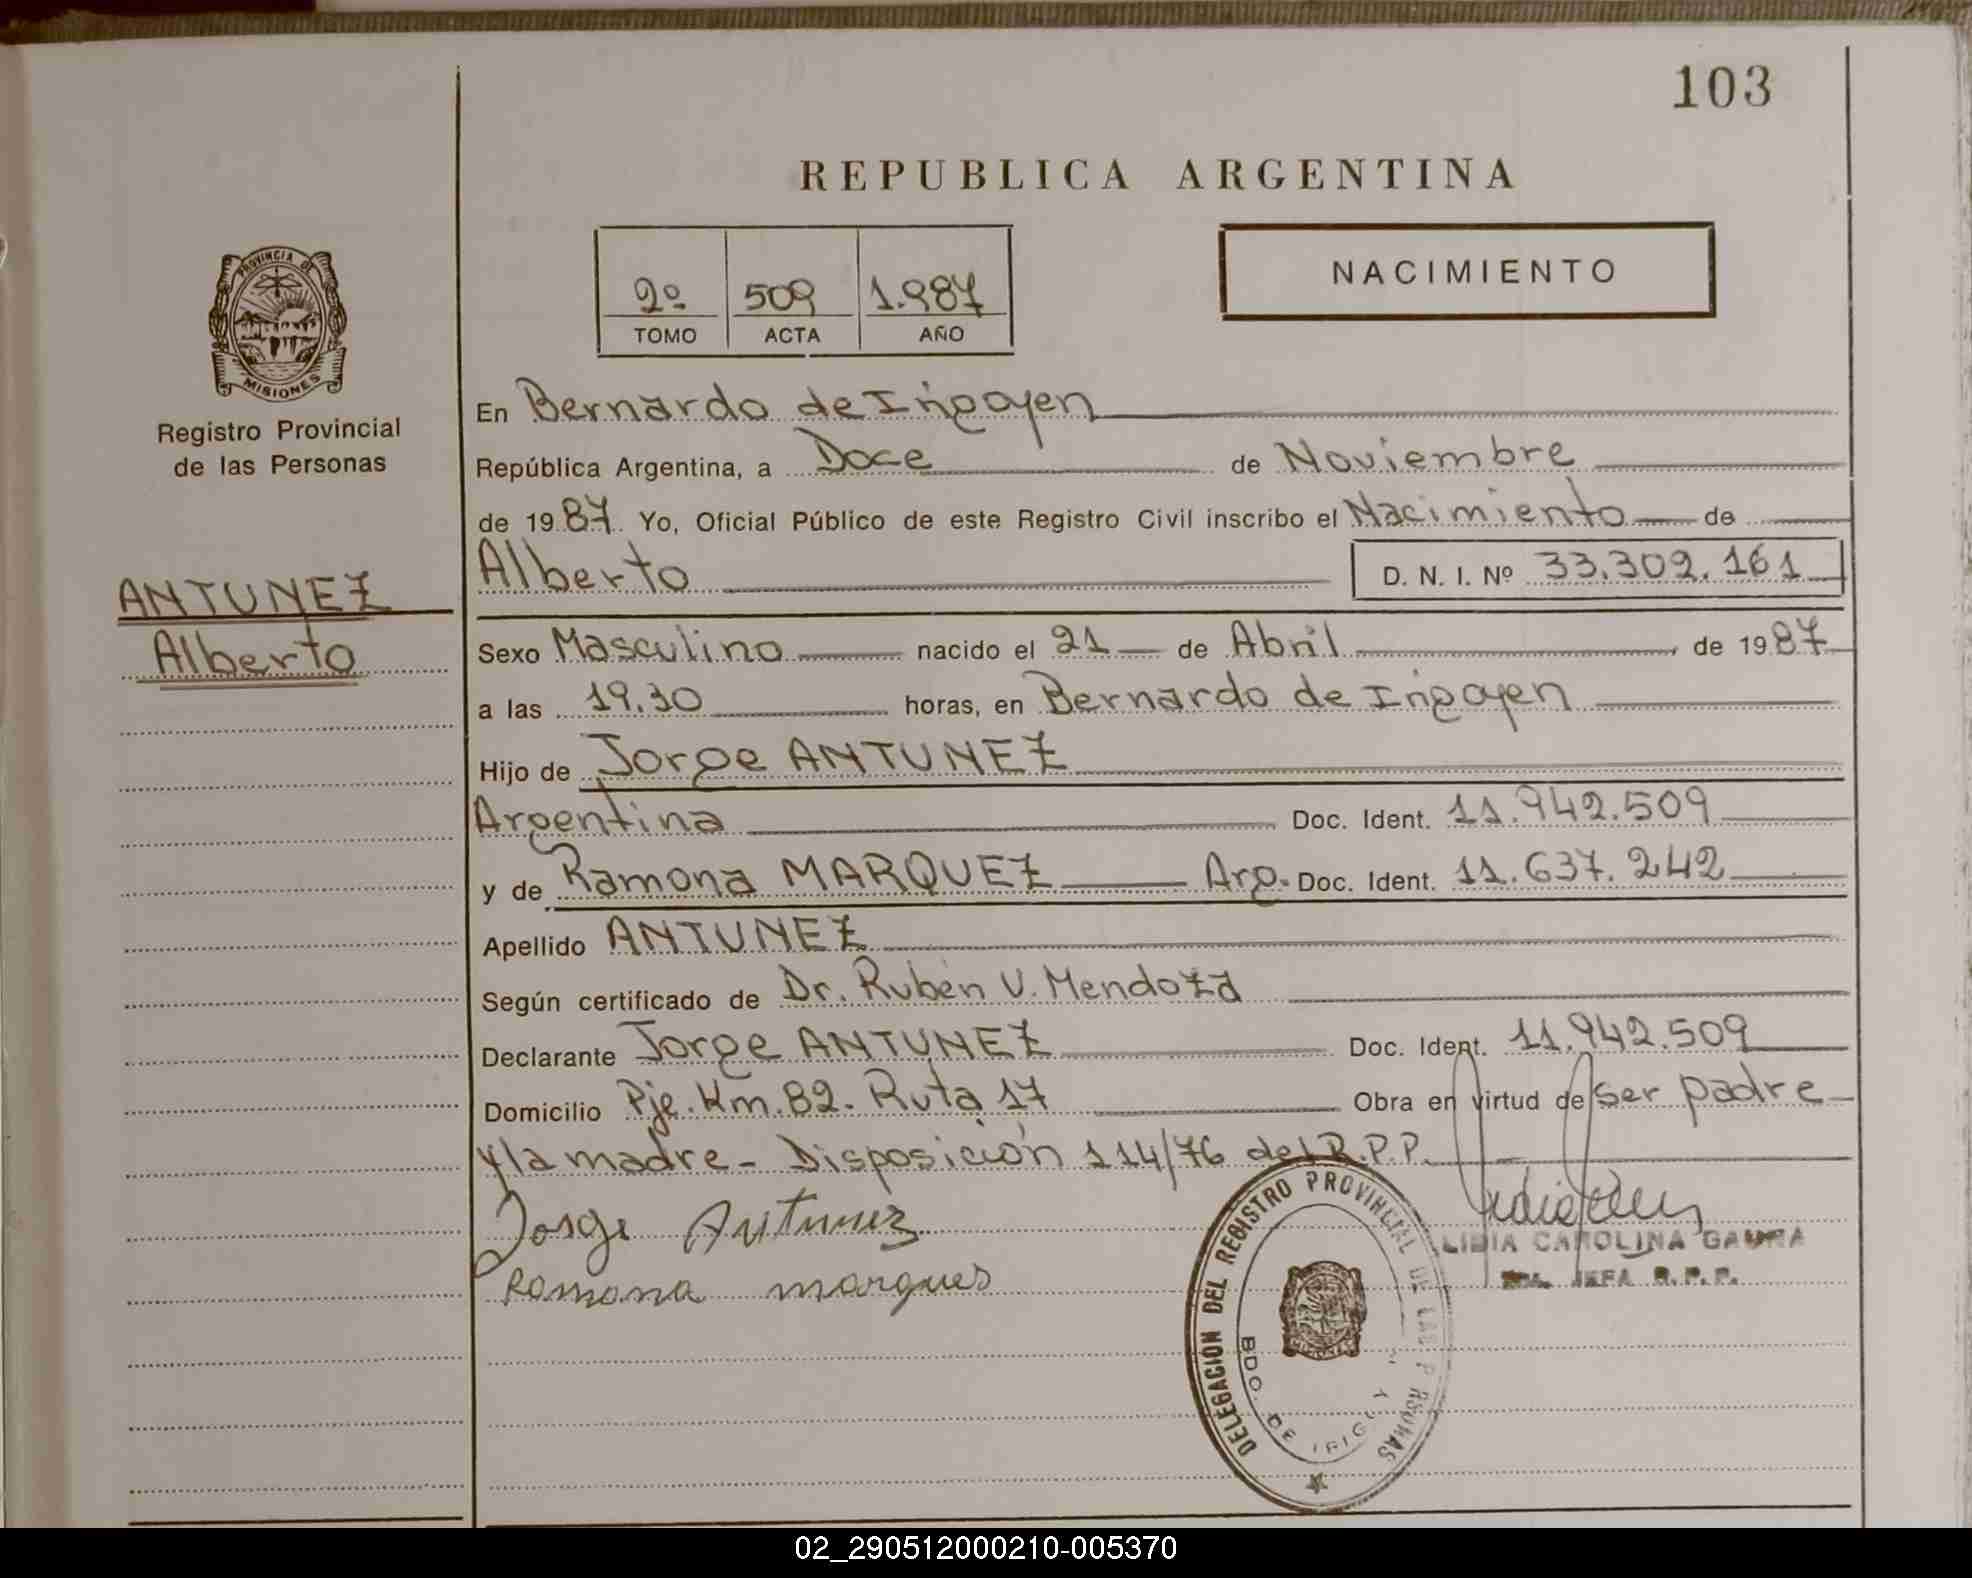 103
REPUBLICA ARGENTINA
2º 509 1.987
TOMO ACTA AÑO
NACIMIENTO
PROVINCIA DE
MISIONES
Registro Provincial
de las Personas
ANTUNEZ
Alberto
En Bernardo de Irigoyen
República Argentina, a Doce de Noviembre
de 1987 Yo, Oficial Público de este Registro Civil inscribo el Nacimiento de
Alberto D. N. I. Nº 33.302.161
Sexo Masculino nacido el 21 de Abril de 1987
a las 19.30 horas, en Bernardo de Irigoyen
Hijo de Jorge ANTUNEZ
Argentina Doc. Ident. 11.942.509
y de Ramona MARQUEZ Arg. Doc. Ident. 11.637.242
Apellido ANTUNEZ
Según certificado de Dr. Rubén V. Mendoza
Declarante Jorge ANTUNEZ Doc. Ident. 11.942.509
Domicilio Pje. Km. 82. Ruta 17 Obra en virtud de ser padre
y la madre - Disposición 114/76 del R.P.P.
Jorge Antunez
Ramona marques
LIDIA CAROLINA GAUNA
JEFA R.P.P.
DELEGACION DEL REGISTRO PROVINCIAL DE LAS PERSONAS
BDO. DE IRIGOYEN
02_290512000210-005370